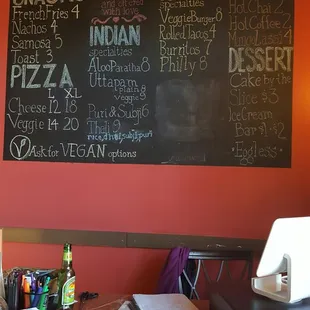 SNACKS
French Fries 4
Nachos 4
Samosa 5
Toast 3
PIZZA
L XL
Cheese 12 18
Veggie 14 20
V Ask for VEGAN options
served with love
INDIAN
specialties
Aloo Paratha 8
Uttapam
plain 8
veggie 9
Puri & Subji 6
Thali 9
rice, dhal, subji, puri
specialties
Veggie Burger 8
Rolled Tacos 4
Burritos 7
Philly 8
Hot Chai 2
Hot Coffee
Mango Lassi 4
DESSERT
Cake by the
Slice $3
Ice Cream
Bar $1
Eggless